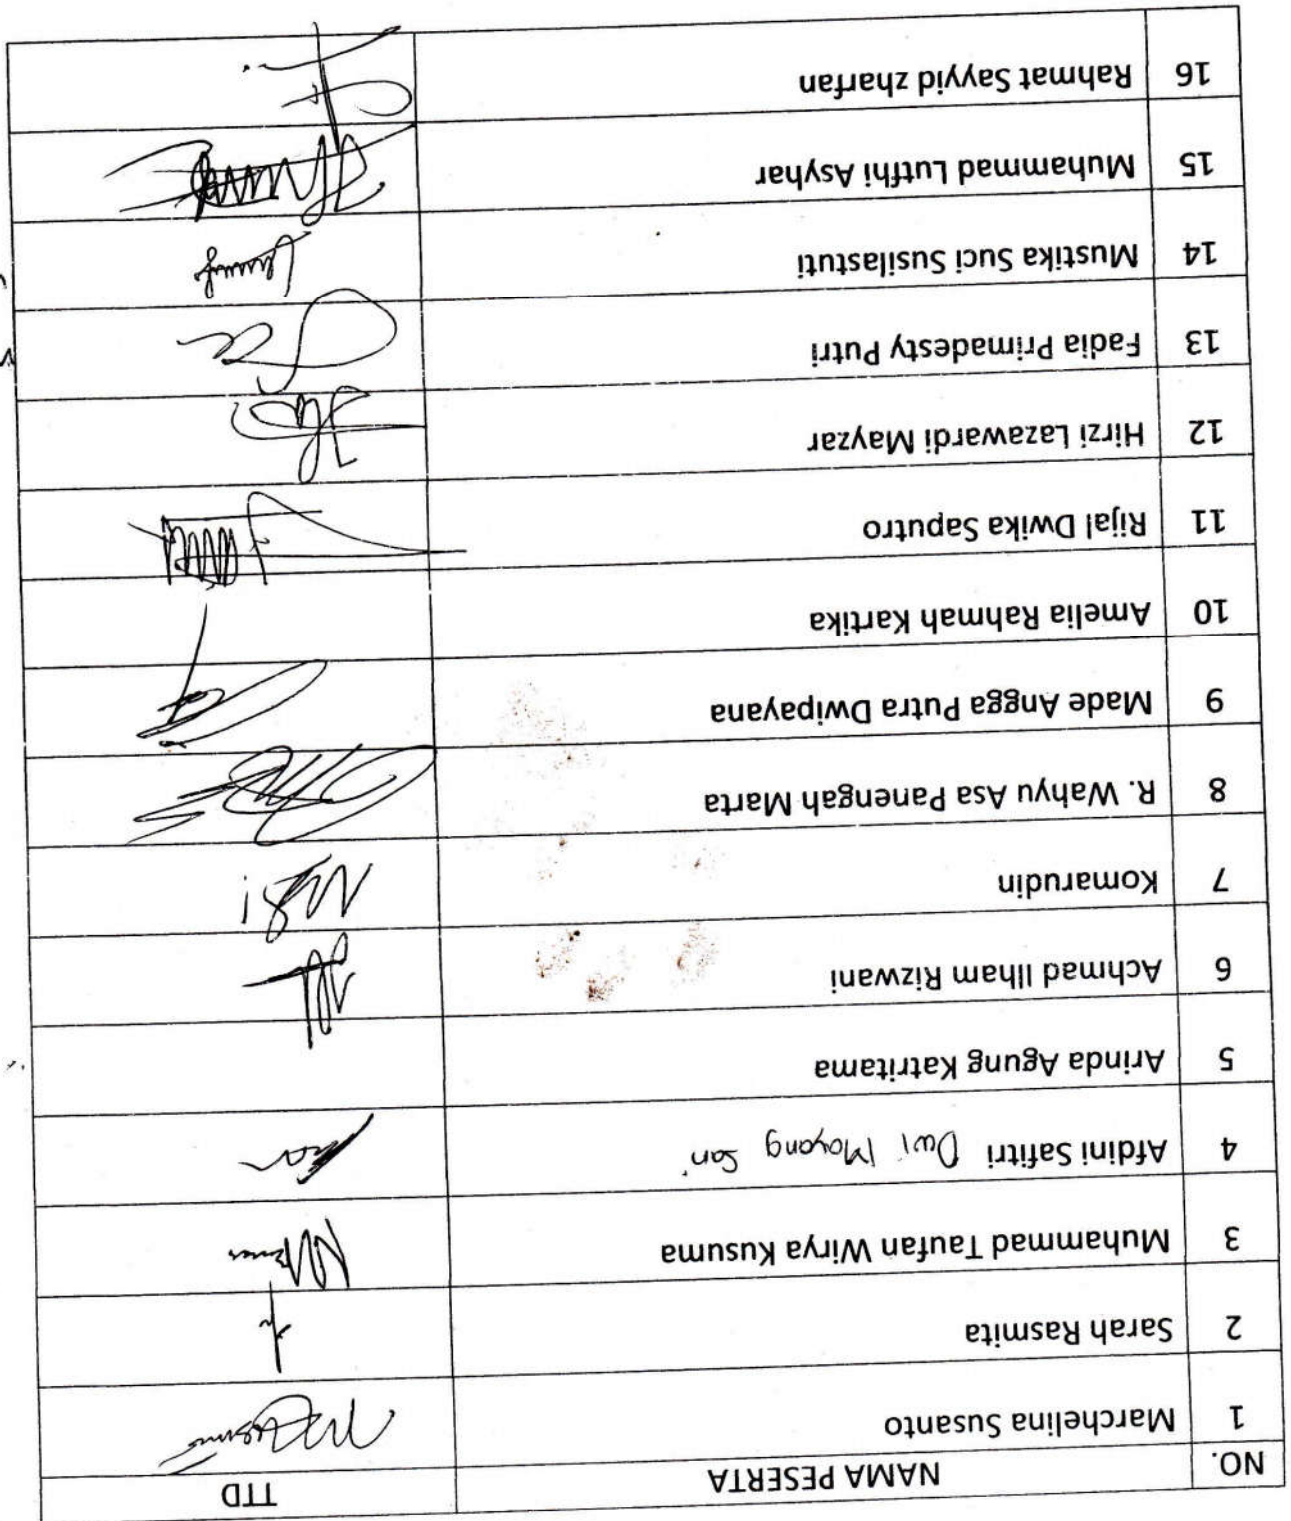 NO. NAMA PESERTA TTD
1 Marchelina Susanto
2 Sarah Rasmita
3 Muhammad Taufan Wirya Kusuma
4 Afdini Safitri Dwi Mayang Sari
5 Arinda Agung Katritama
6 Achmad Ilham Rizwani
7 Komarudin
8 R. Wahyu Asa Panengah Marta
9 Made Angga Putra Dwipayana
10 Amelia Rahmah Kartika
11 Rijal Dwika Saputro
12 Hirzi Lazawardi Mayzar
13 Fadia Primadesty Putri
14 Mustika Suci Susilastuti
15 Muhammad Lutfhi Asyhar
16 Rahmat Sayyid zharfan